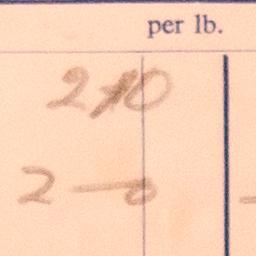 per lb.
2/10
2—0